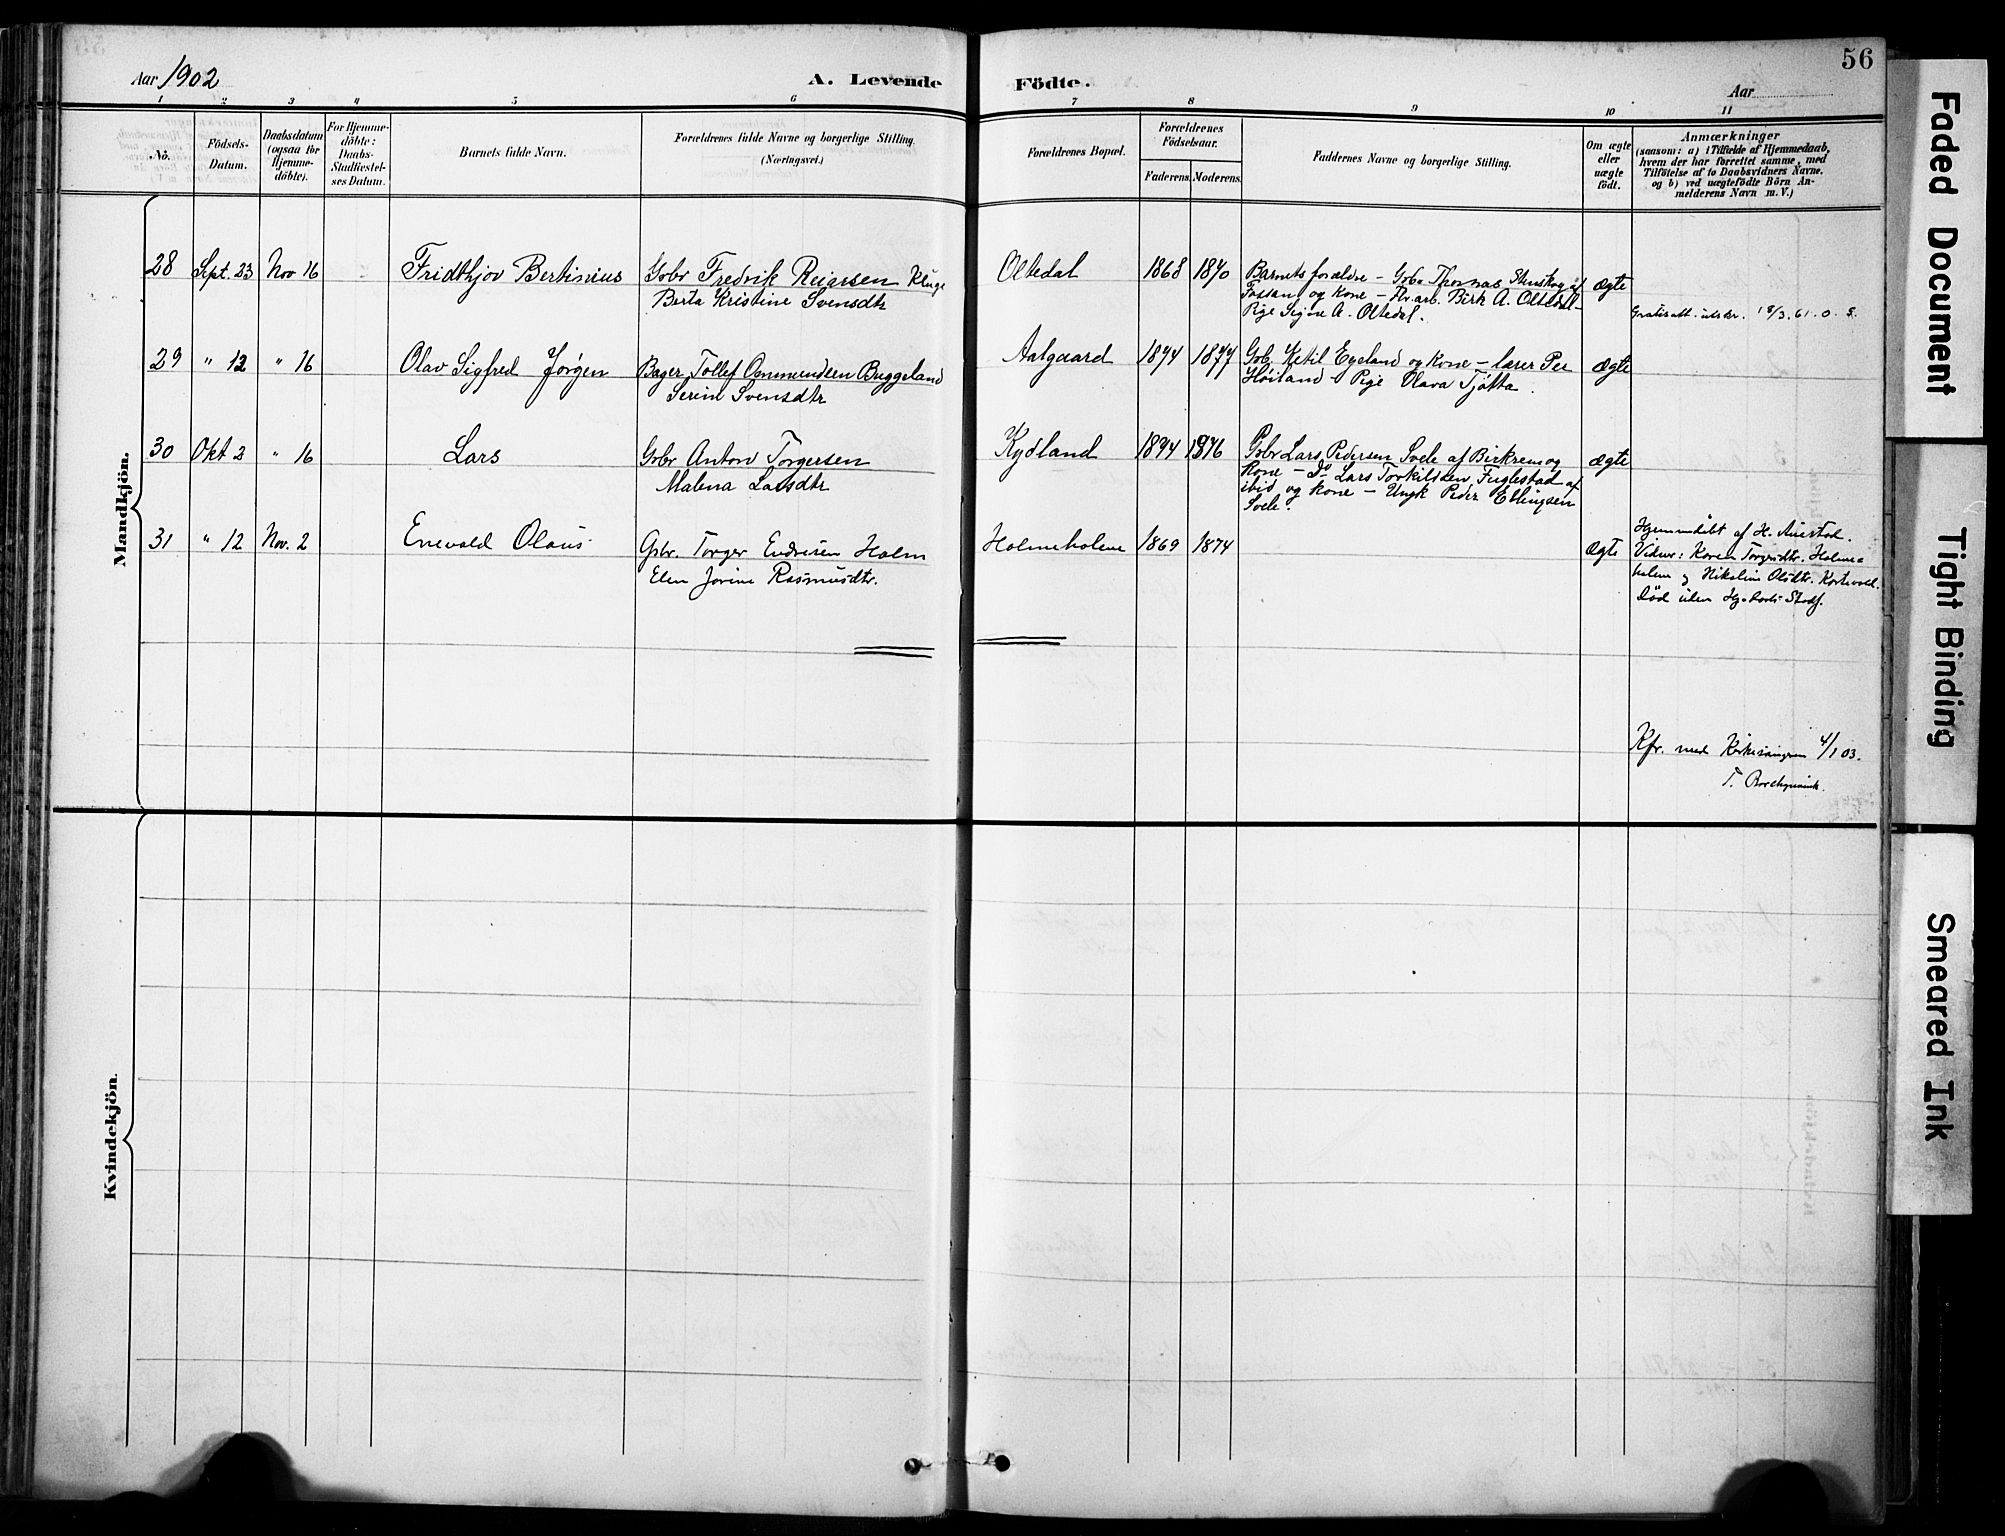 Aar 1902
A. Levende
Födte.
Aar
56
1 2 3 4 5 6 7 8 9 10 11
No.
Födsels-
Datum.
Daabsdatum
(ogsaa for
Hjemme-
döbte).
For Hjemme-
döbte:
Daabs-
Stadfæstel-
ses Datum.
Barnets fulde Navn.
Forældrenes fulde Navne og borgerlige Stilling.
(Næringsvei.)
Forældrenes Bopæl.
Forældrenes
Födselsaar.
Faderens.
Moderens.
Faddernes Navne og borgerlige Stilling.
Om ægte
eller
uægte
födt.
Anmærkninger
(saasom: a) i Tilfælde af Hjemmedaab,
hvem der har forrettet samme, med
Tilföielse af to Daabsvidners Navne.
og b) ved uægtefödte Börn An-
melderens Navn m. V.)
Mandkjön.
28 Sept. 23 Nov 16 Fridthjov Bertinius Gbr Fredrik Reiarsen Kluge
Berta Kristine Svensdtr
Oltedal 1868 1870 Barnets forældre – Gbr Thomas
Fossan og kone – Birk A. Oltedal –
Pige Signe A. Oltedal.
ægte
18/3.61.
29 " 12 " 16 Olav Sigfred Jørgen Bager Tollef Ommundsen Buggeland
Serine Svensdtr
Aalgaard 1874 1877 Gbr Ketil Egeland og kone – lærer Per
Høiland Pige Olava Tjøtta.
ægte
30 Okt 2 " 16 Lars Gbr Anton Torgersen
Malena Larsdtr
Kydland 1874 1876 Gbr Lars Pedersen Svele af Birkrem og
kone – Do Lars Torkildsen Fuglestad af
ibid og kone – Ungk Peder Ellingsen
Svele.
ægte
31 " 12 Nov. 2 Enevald Olaus Gbr. Torger Endresen Holm
Elen Jorine Rasmusdtr.
Holmeholene 1869 1874 ægte
Hjemmedøbt af H. Auestad.
Vidner: Karen Torgersdtr. Holme-
holene og Nikoline Olsdtr.
Død uden Hj-daabs Stadf.
Kfr. med Kirkesangeren 4/1 03.
T.
Kvindekjön.
Faded Document
Tight Binding
Smeared Ink